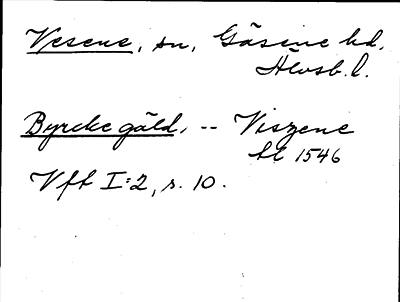 Vesene, sn, Gäsene hd,
Älvsb. l.
Byrcke gäld, -- Viszene
hE 1546
Vft I:2, s. 10.